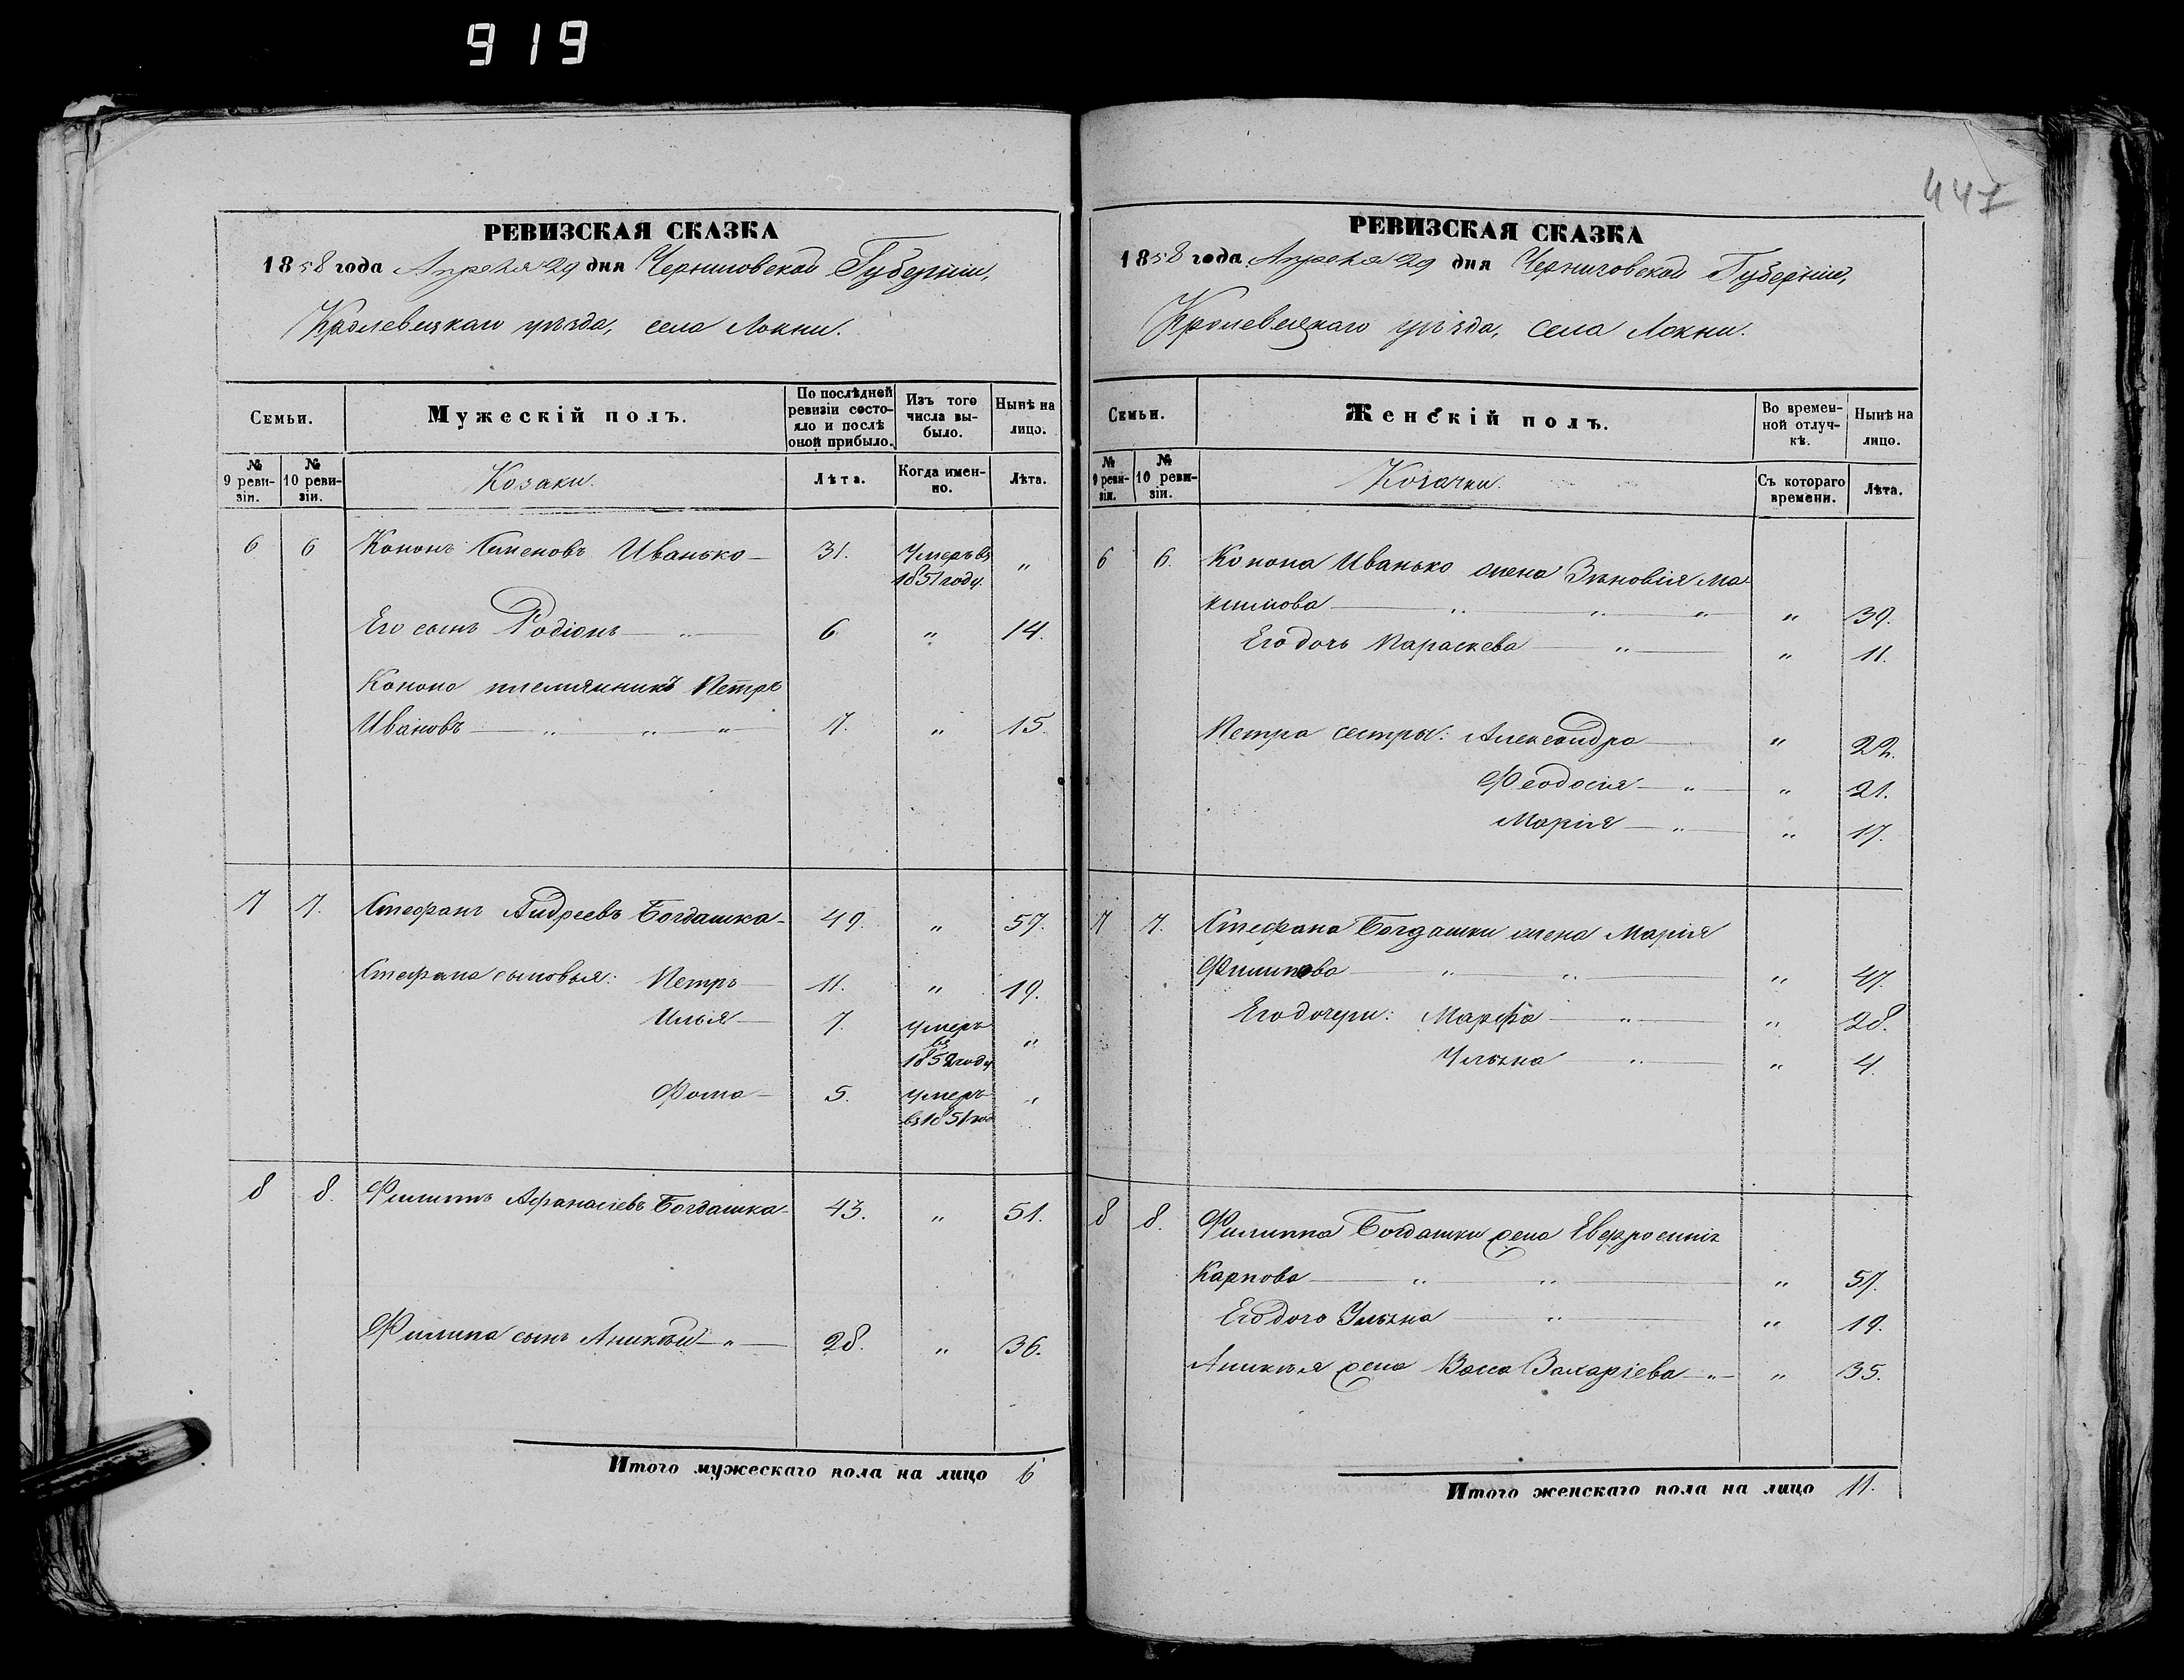 919
447
РЕВИЗСКАЯ СКАЗКА
1858 года Апреля 29 дня Черниговской Губерніи,
Кролевецкаго уѣзда, села Локни.
Семьи.
Мужескій полъ.
По послѣдней ревизіи состояло и послѣ оной прибыло.
Изъ того числа выбыло.
Нынѣ на лицо.
№ 9 ревизіи.
№ 10 ревизіи.
Козаки.
Лѣта.
Когда именно.
Лѣта.
6 6 Кононъ Семеновъ Иванько — 31. Умеръ въ 1851 году. „
Его сынъ Родіонъ — „ — 6 „ 14.
Конона племянникъ Петръ
Ивановъ — „ — „ — „ — 7. „ 15.
7 7. Стефанъ Андреевъ Богдашка — 49. „ 57.
Стефана сыновья: Петръ — 11. „ 19.
Илья — 7. Умеръ въ 1852 году „
Фома — 5. Умеръ въ 1851 год „
8 8. Филиппъ Афанасіевъ Богдашка — 43. „ 51.
Филипа сынъ Аникѣй — „ — 28. „ 36.
Итого мужескаго пола на лицо 6
РЕВИЗСКАЯ СКАЗКА
1858 года Апреля 29 дня Черниговской Губерніи,
Кролевецкаго уѣзда, села Локни.
Семьи.
Женскій полъ.
Во временной отлучкѣ.
Нынѣ на лицо.
№ 9 ревизіи.
№ 10 ревизіи.
Козачки.
Съ котораго времени.
Лѣта.
6 6. Конона Иванько жена Зѣновія Ма
ксимова — „ — „ — „ „ 39.
Его дочь Параскева — „ — „ 11.
Петра сестры: Александра — „ 22.
Феодосія — „ — „ 21.
Марія — „ — „ 17.
7 7. Стефана Богдашки жена Марія
Филипова — „ — „ — „ 47.
Его дочери: Марфа — „ — „ 28.
Ульяна — „ — „ 4.
8 8. Филиппа Богдашки жена Евфросинія
Карпова — „ — „ — „ 57.
Его дочь Ульяна — „ — „ 19.
Аникѣя жена Васса Захаріева — „ — „ 35.
Итого женскаго пола на лицо 11.